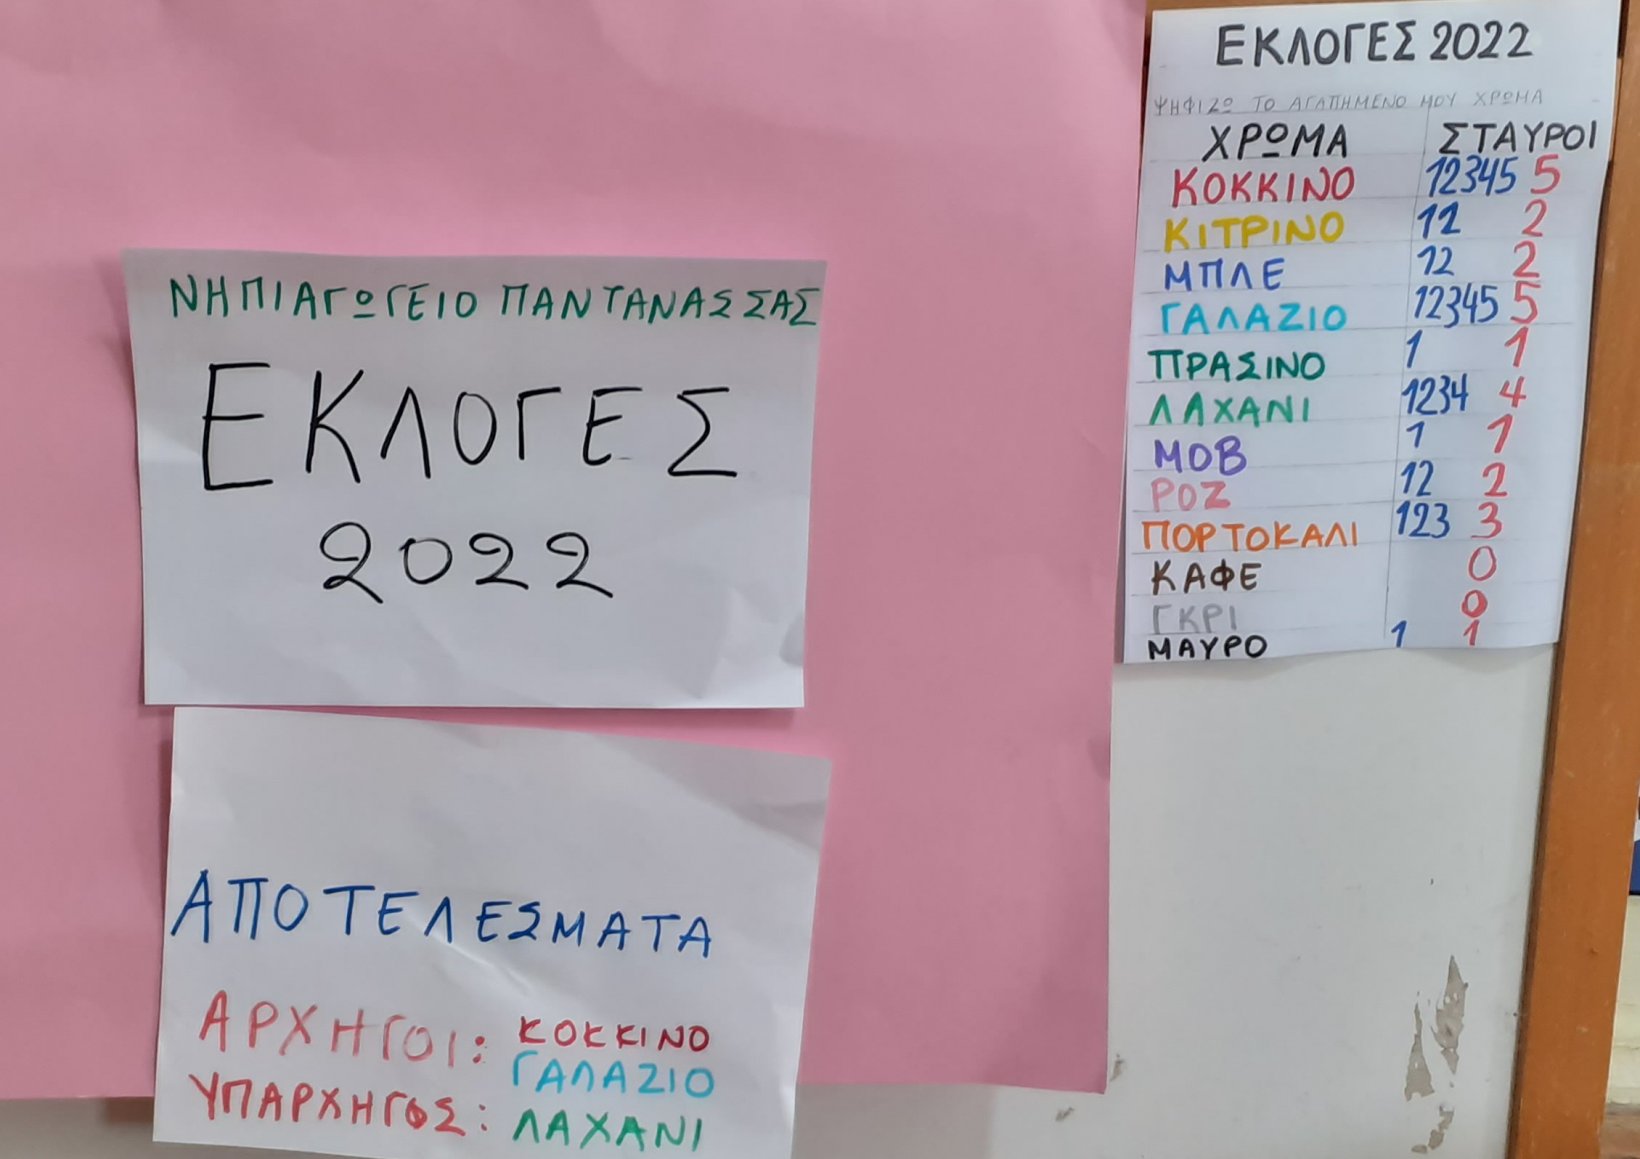 ΝΗΠΙΑΓΩΓΕΙΟ ΠΑΝΤΑΝΑΣΣΑΣ
ΕΚΛΟΓΕΣ
2022
ΑΠΟΤΕΛΕΣΜΑΤΑ
ΑΡΧΗΓΟΙ: ΚΟΚΚΙΝΟ
ΓΑΛΑΖΙΟ
ΥΠΑΡΧΗΓΟΣ: ΛΑΧΑΝΙ
ΕΚΛΟΓΕΣ 2022
ΨΗΦΙΖΩ ΤΟ ΑΓΑΠΗΜΕΝΟ ΜΟΥ ΧΡΩΜΑ
ΧΡΩΜΑ ΣΤΑΥΡΟΙ
ΚΟΚΚΙΝΟ 12345 5
ΚΙΤΡΙΝΟ 12 2
ΜΠΛΕ 12 2
ΓΑΛΑΖΙΟ 12345 5
ΠΡΑΣΙΝΟ 1 1
ΛΑΧΑΝΙ 1234 4
ΜΟΒ 1 1
ΡΟΖ 12 2
ΠΟΡΤΟΚΑΛΙ 123 3
ΚΑΦΕ 0
ΓΚΡΙ 0
ΜΑΥΡΟ 1 1